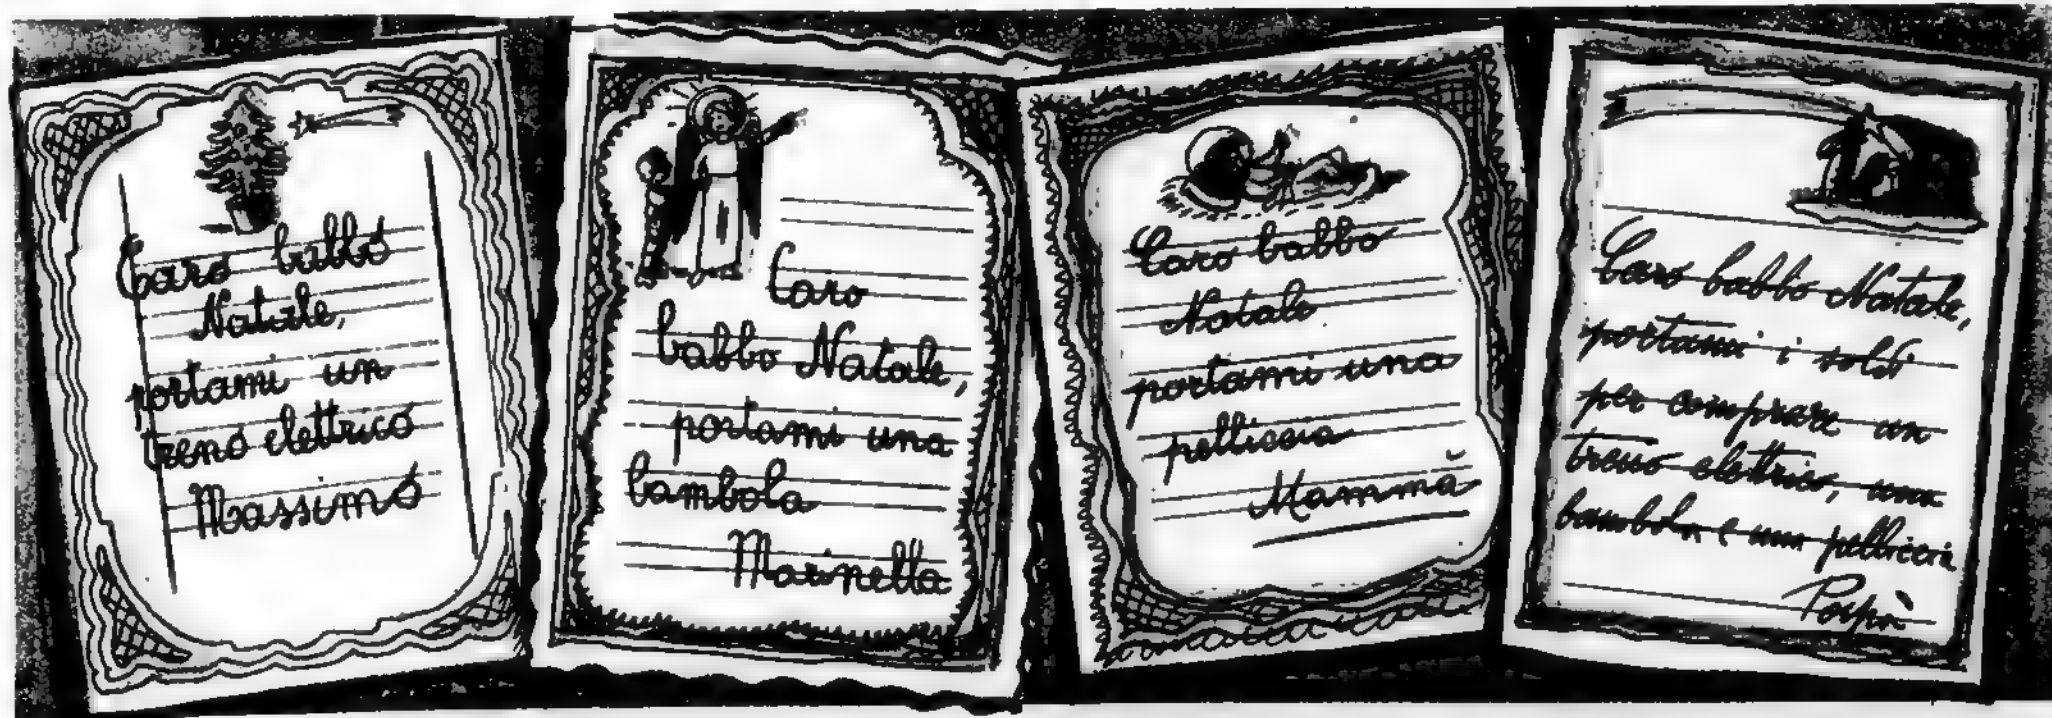 Caro babbo
Natale,
portami un
treno elettrico
Massimo
Caro
babbo Natale,
portami una
bambola
Marinella
Caro babbo
Natale
portami una
pelliccia
Mammà
Caro babbo Natale,
portami i soldi
per comprare un
treno elettrico, una
bambola e una pelliccia